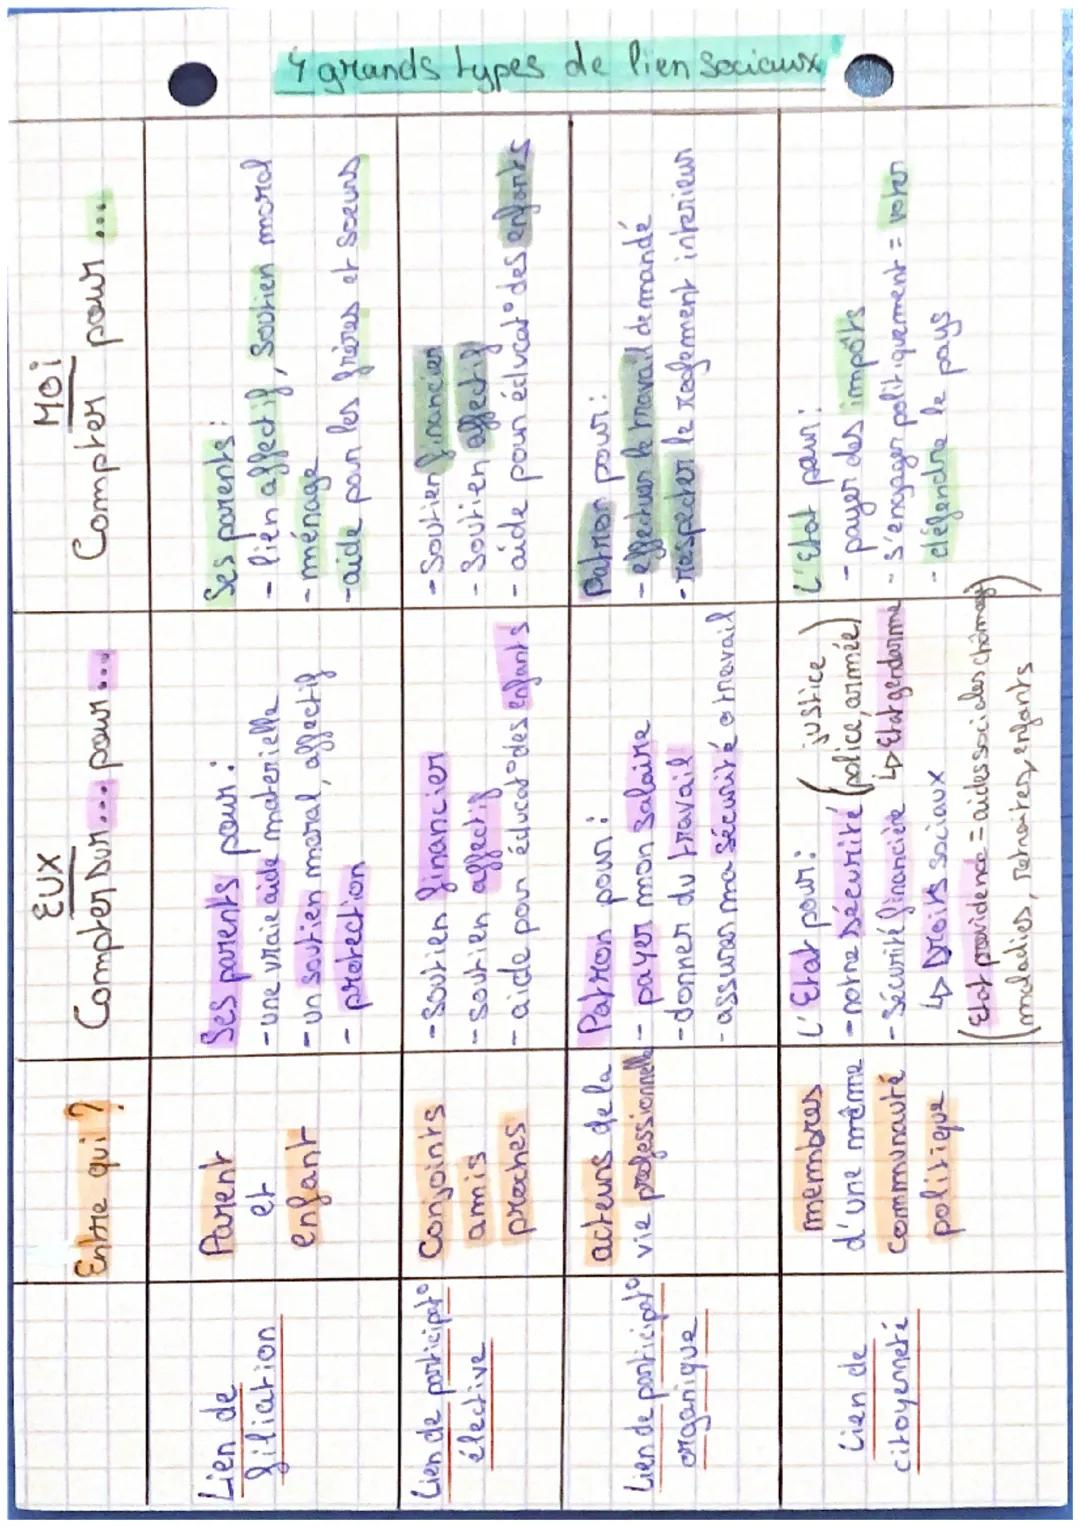 4 grands types de lien Sociaux
Entre qui ?
EUX
Compter sur... pour...
MOI
Compter pour ...
Lien de
filiation
Parent
et
enfant
Ses parents pour :
- une vraie aide materielle
- un soutien moral, affectif
- protection
Ses parents :
- lien affectif, soutien moral
- ménage
- aide pour les frères et soeurs
Lien de participat°
élective
Conjoints
amis
proches
- Soutien financier
- soutien affectif
- aide pour éducat° des enfants
- Soutien financier
- Soutien affectif
- aide pour éducat° des enfants
Lien de participat°
organique
acteurs de la
vie professionnelle
Patron pour :
- payer mon salaire
- donner du travail
- assurer ma sécurité o travail
Patron pour :
- effectuer le travail demandé
- respecter le reglement interieur
Lien de
citoyenneté
membres
d'une même
communauté
politique
L'Etat pour :
- notre sécurité (justice
police, armée)
↳ Etat gendarme
- Sécurité financière
↳ Droits sociaux
(Etat providence = aides sociales chômage)
(maladies, retraites, enfants
L'Etat pour :
- payer des impôts
- s'engager politiquement = voter
- défendre le pays